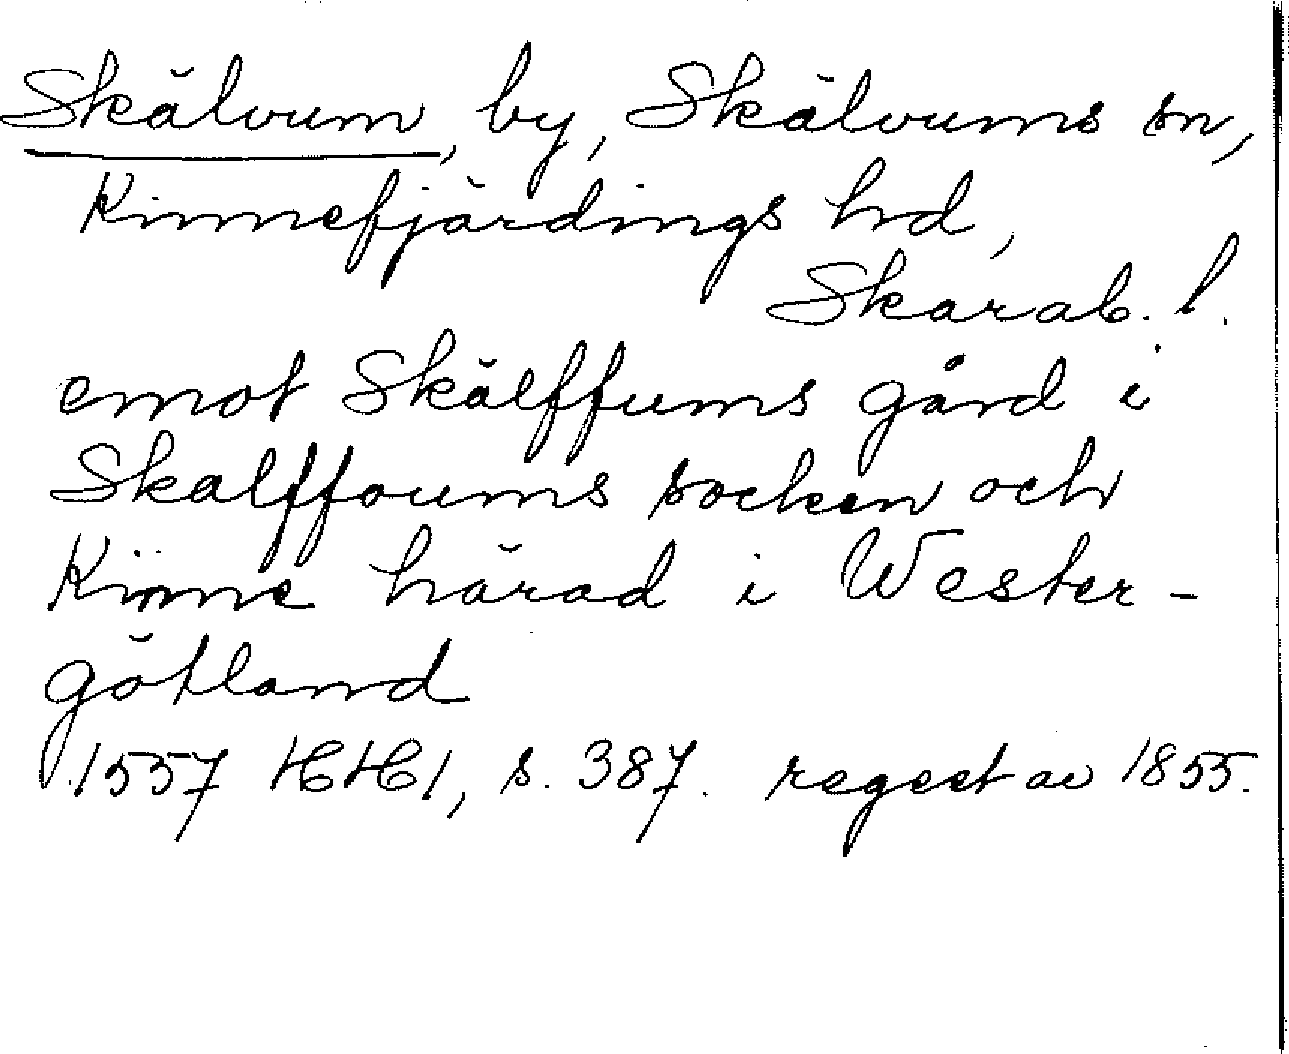 Skälvum, by, Skälvums sn,
Kinnefjärdings hd,
Skarab. l.
emot Skälffums gård i
Skalffoums socken och
Kinne härad i Wester-
götland
1557 HH1, s. 387. regest av 1855.